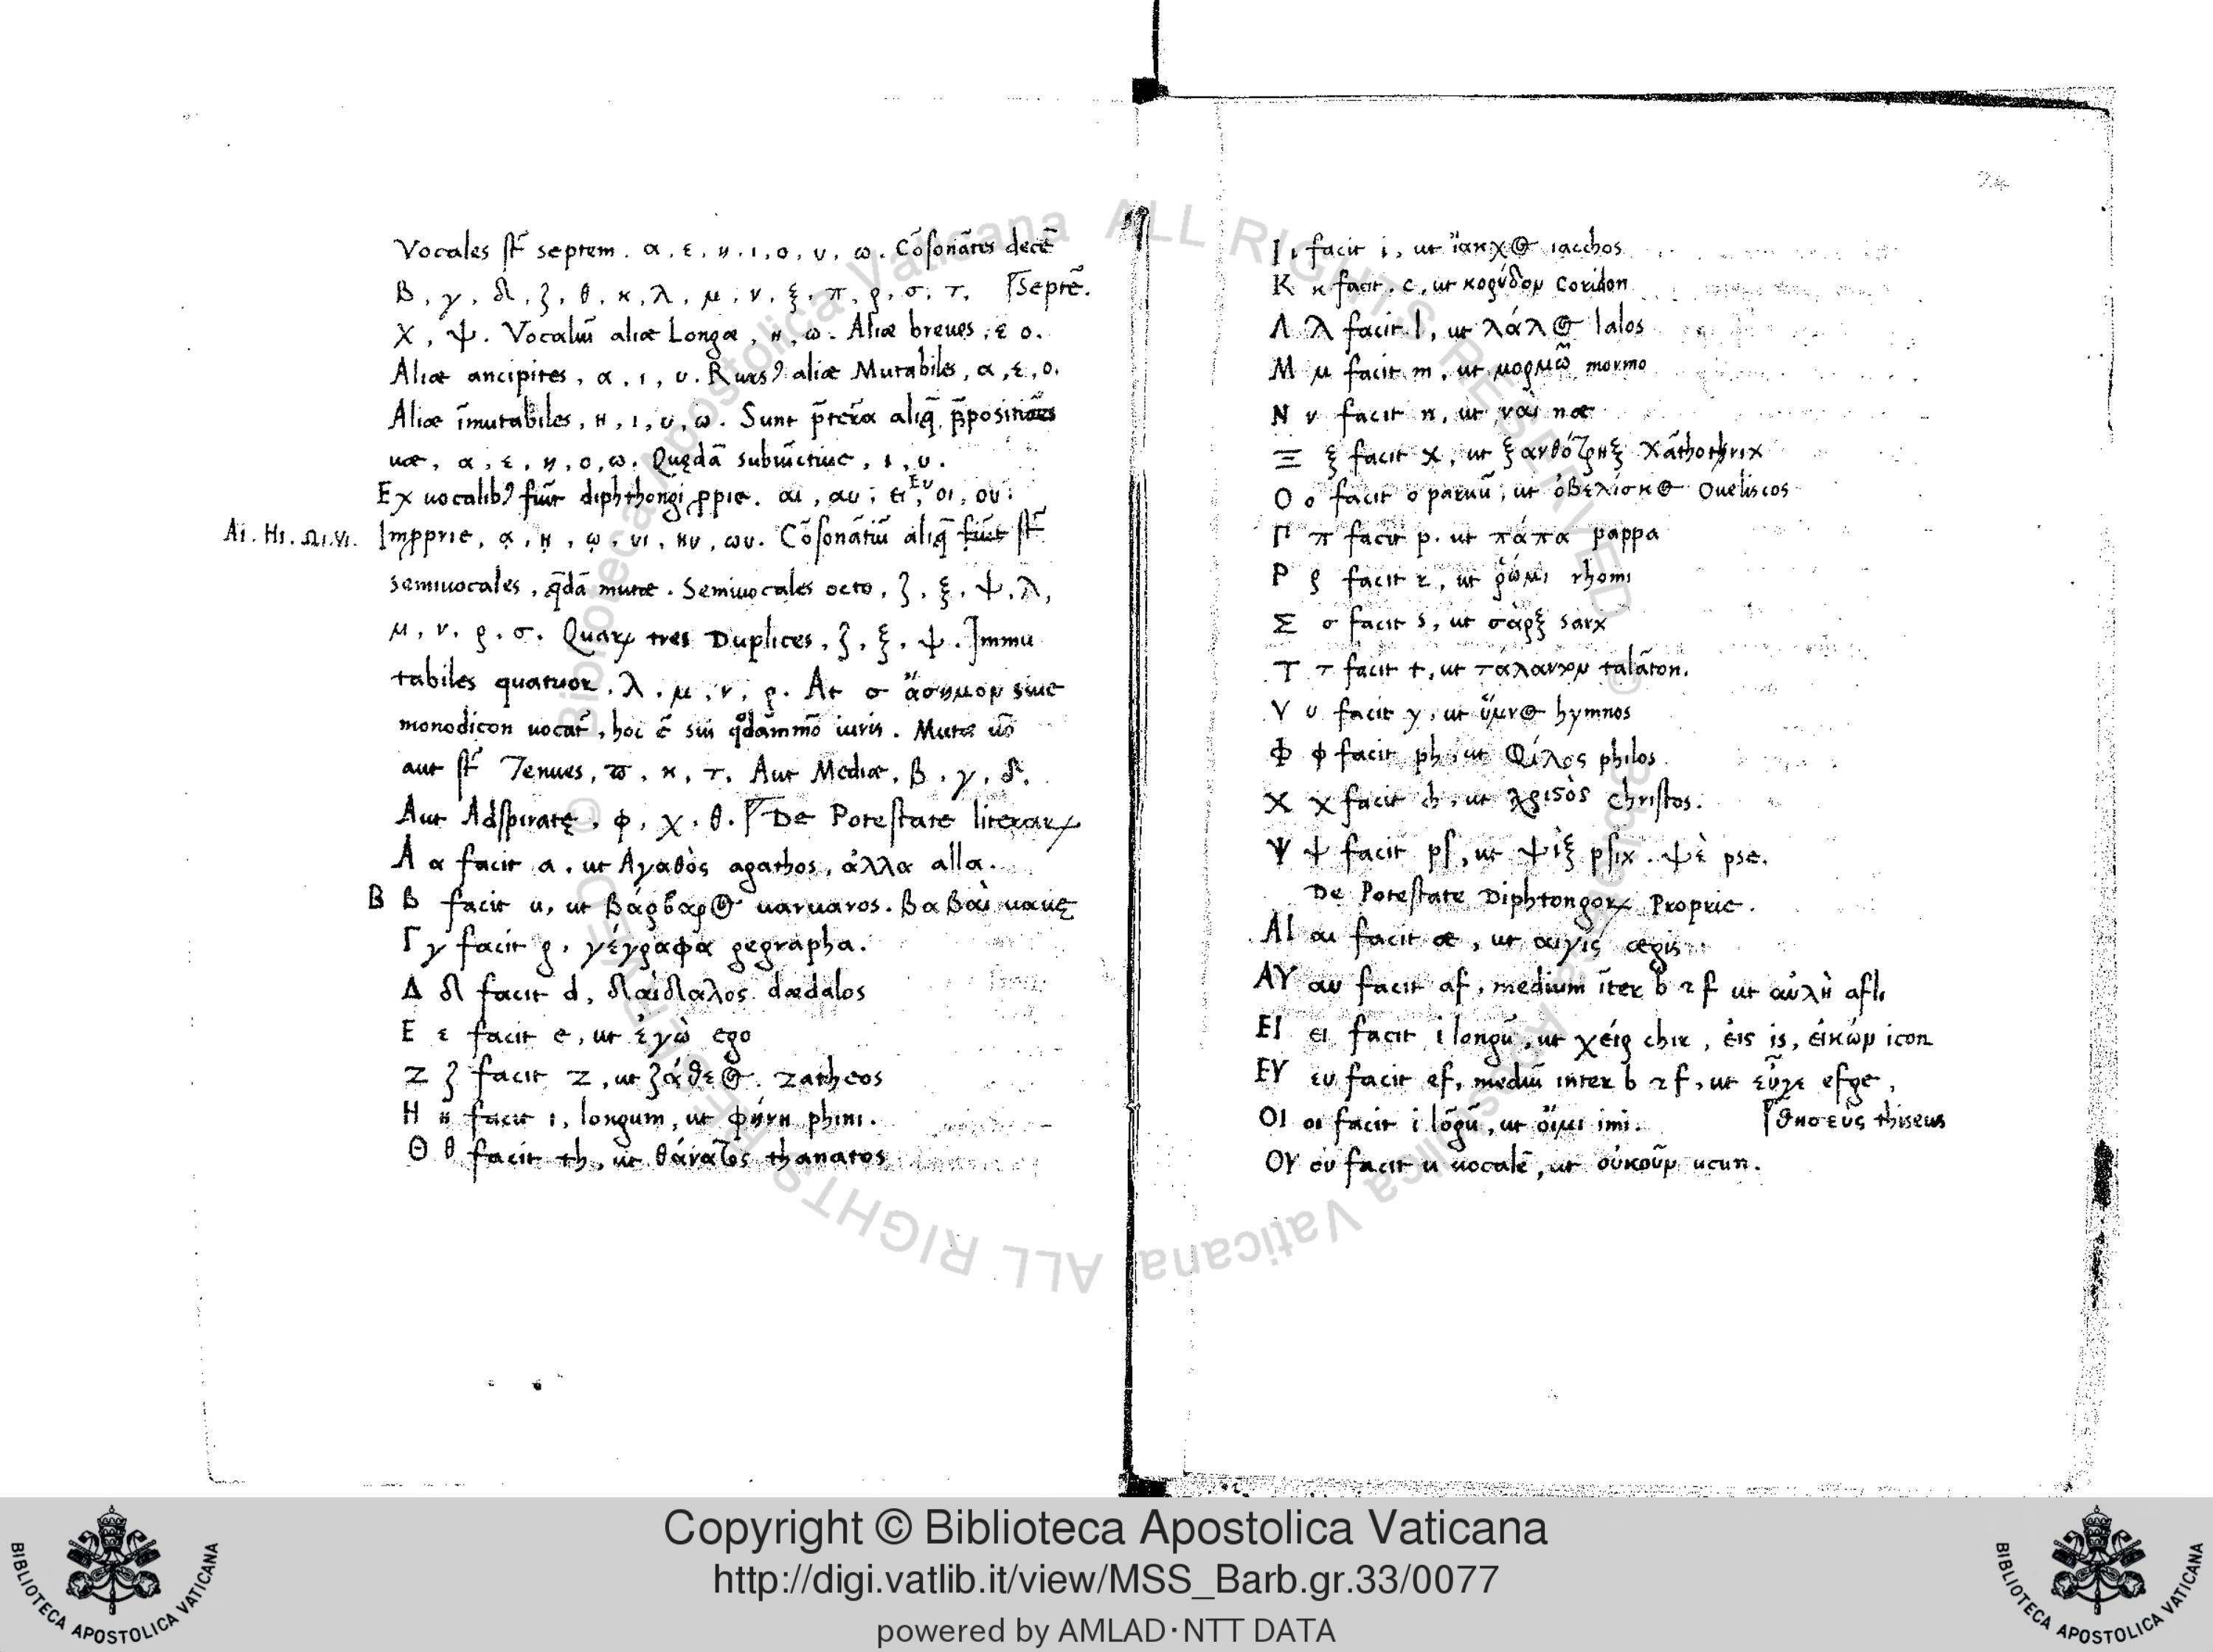 Vocales st̄ septem. α, ε, η, ι, ο, υ, ω. Cōsonātes decē
β, γ, δ, ζ, θ, κ, λ, μ, ν, ξ, π, ρ, σ, τ, septē.
χ, ψ. Vocaliū aliæ Longæ, η, ω. Aliæ breues, ε ο.
Aliæ ancipites, α, ι, υ. Rursꝰ aliæ Mutabiles, α, ε, ο.
Aliæ īmutabiles, η, ι, υ, ω. Sunt p̄terea aliq̄
uæ, α, ε, η, ο, ω. Quędā subiūctiue, ι, υ.
Ex uocalibꝰ fiūt diphthongi ꝓprie. αι, αυ, ει, ευ οι, ου.
Αι. Ηι. Ωι. Υι. Impprie, ᾳ, ῃ, ῳ, υι, ηυ, ωυ. Cōsonātiū aliq̄ fiūt st̄
semiuocales, q̄dā mutæ. Semiuocales octo, ζ, ξ, ψ, λ,
μ, ν, ρ, σ. Quaꝝ tres Duplices, ζ, ξ, ψ. Immu
tabiles quatuor, λ, μ, ν, ρ. At σ ἄσημον siue
monodicon uocat̄, hoc ē sui iuris. Mutæ uō
aut st̄ Tenues, ϖ, κ, τ. Aut Mediæ, β, γ, δ.
Aut Adspiratę, φ, χ, θ. De Potestate literaꝝ
Α α facit a, ut Αγαθὸς agathos, ἀλλα alla.
Β β facit u, ut βάρβαρος uaruaros. βαβαὶ uauę
Γ γ facit g, γέγραφα gegrapha.
Δ δ facit d, δαίδαλος dædalos
Ε ε facit e, ut ἐγὼ ego
Ζ ζ facit z, ut ζάθεος zatheos
Η η facit i, longum, ut φήνη phini.
Θ θ facit th, ut θάνατος thanatos
24
Ι ι facit i, ut ἴακχος iacchos
Κ κ facit c, ut κορύδον Coridon
Λ λ facit l, ut λάλος lalos
Μ μ facit m, ut μορμῶ mormo
Ν ν facit n, ut ναὶ næ
Ξ ξ facit x, ut ξανθότριξ Xāthothrix
Ο ο facit o paruū, ut ὀβελίσκος oueliscos
Π π facit p. ut πάπα pappa
Ρ ρ facit r, ut ῥώμι rhomi
Σ σ facit s, ut σὰρξ sarx
Τ τ facit t, ut τάλαντον talāton.
Υ υ facit y, ut ὕμνος hymnos
Φ φ facit ph, ut φίλος philos
Χ χ facit ch, ut χριστὸς christos.
Ψ ψ facit ps, ut ψὶξ psix. ψὲ pse.
De Potestate Diphtongoꝝ Proprie.
ΑΙ αι facit æ, ut αιγὶς ægis
ΑΥ αυ facit af, medium īter b ⁊ f ut αὐλὴ afli
ΕΙ ει facit i longū, ut χείρ chir, ἐις is, ἐικών icon
ΕΥ ευ facit ef, mediū inter b ⁊ f, ut εὖγε efge,
θησεὺς thiseus
ΟΙ οι facit i lōgū, ut οἴμι imi.
ΟΥ ου facit u uocalē, ut οὐκοῦν ucun.
Copyright © Biblioteca Apostolica Vaticana
http://digi.vatlib.it/view/MSS_Barb.gr.33/0077
powered by AMLAD·NTT DATA
BIBLIOTECA APOSTOLICA VATICANA
BIBLIOTECA APOSTOLICA VATICANA